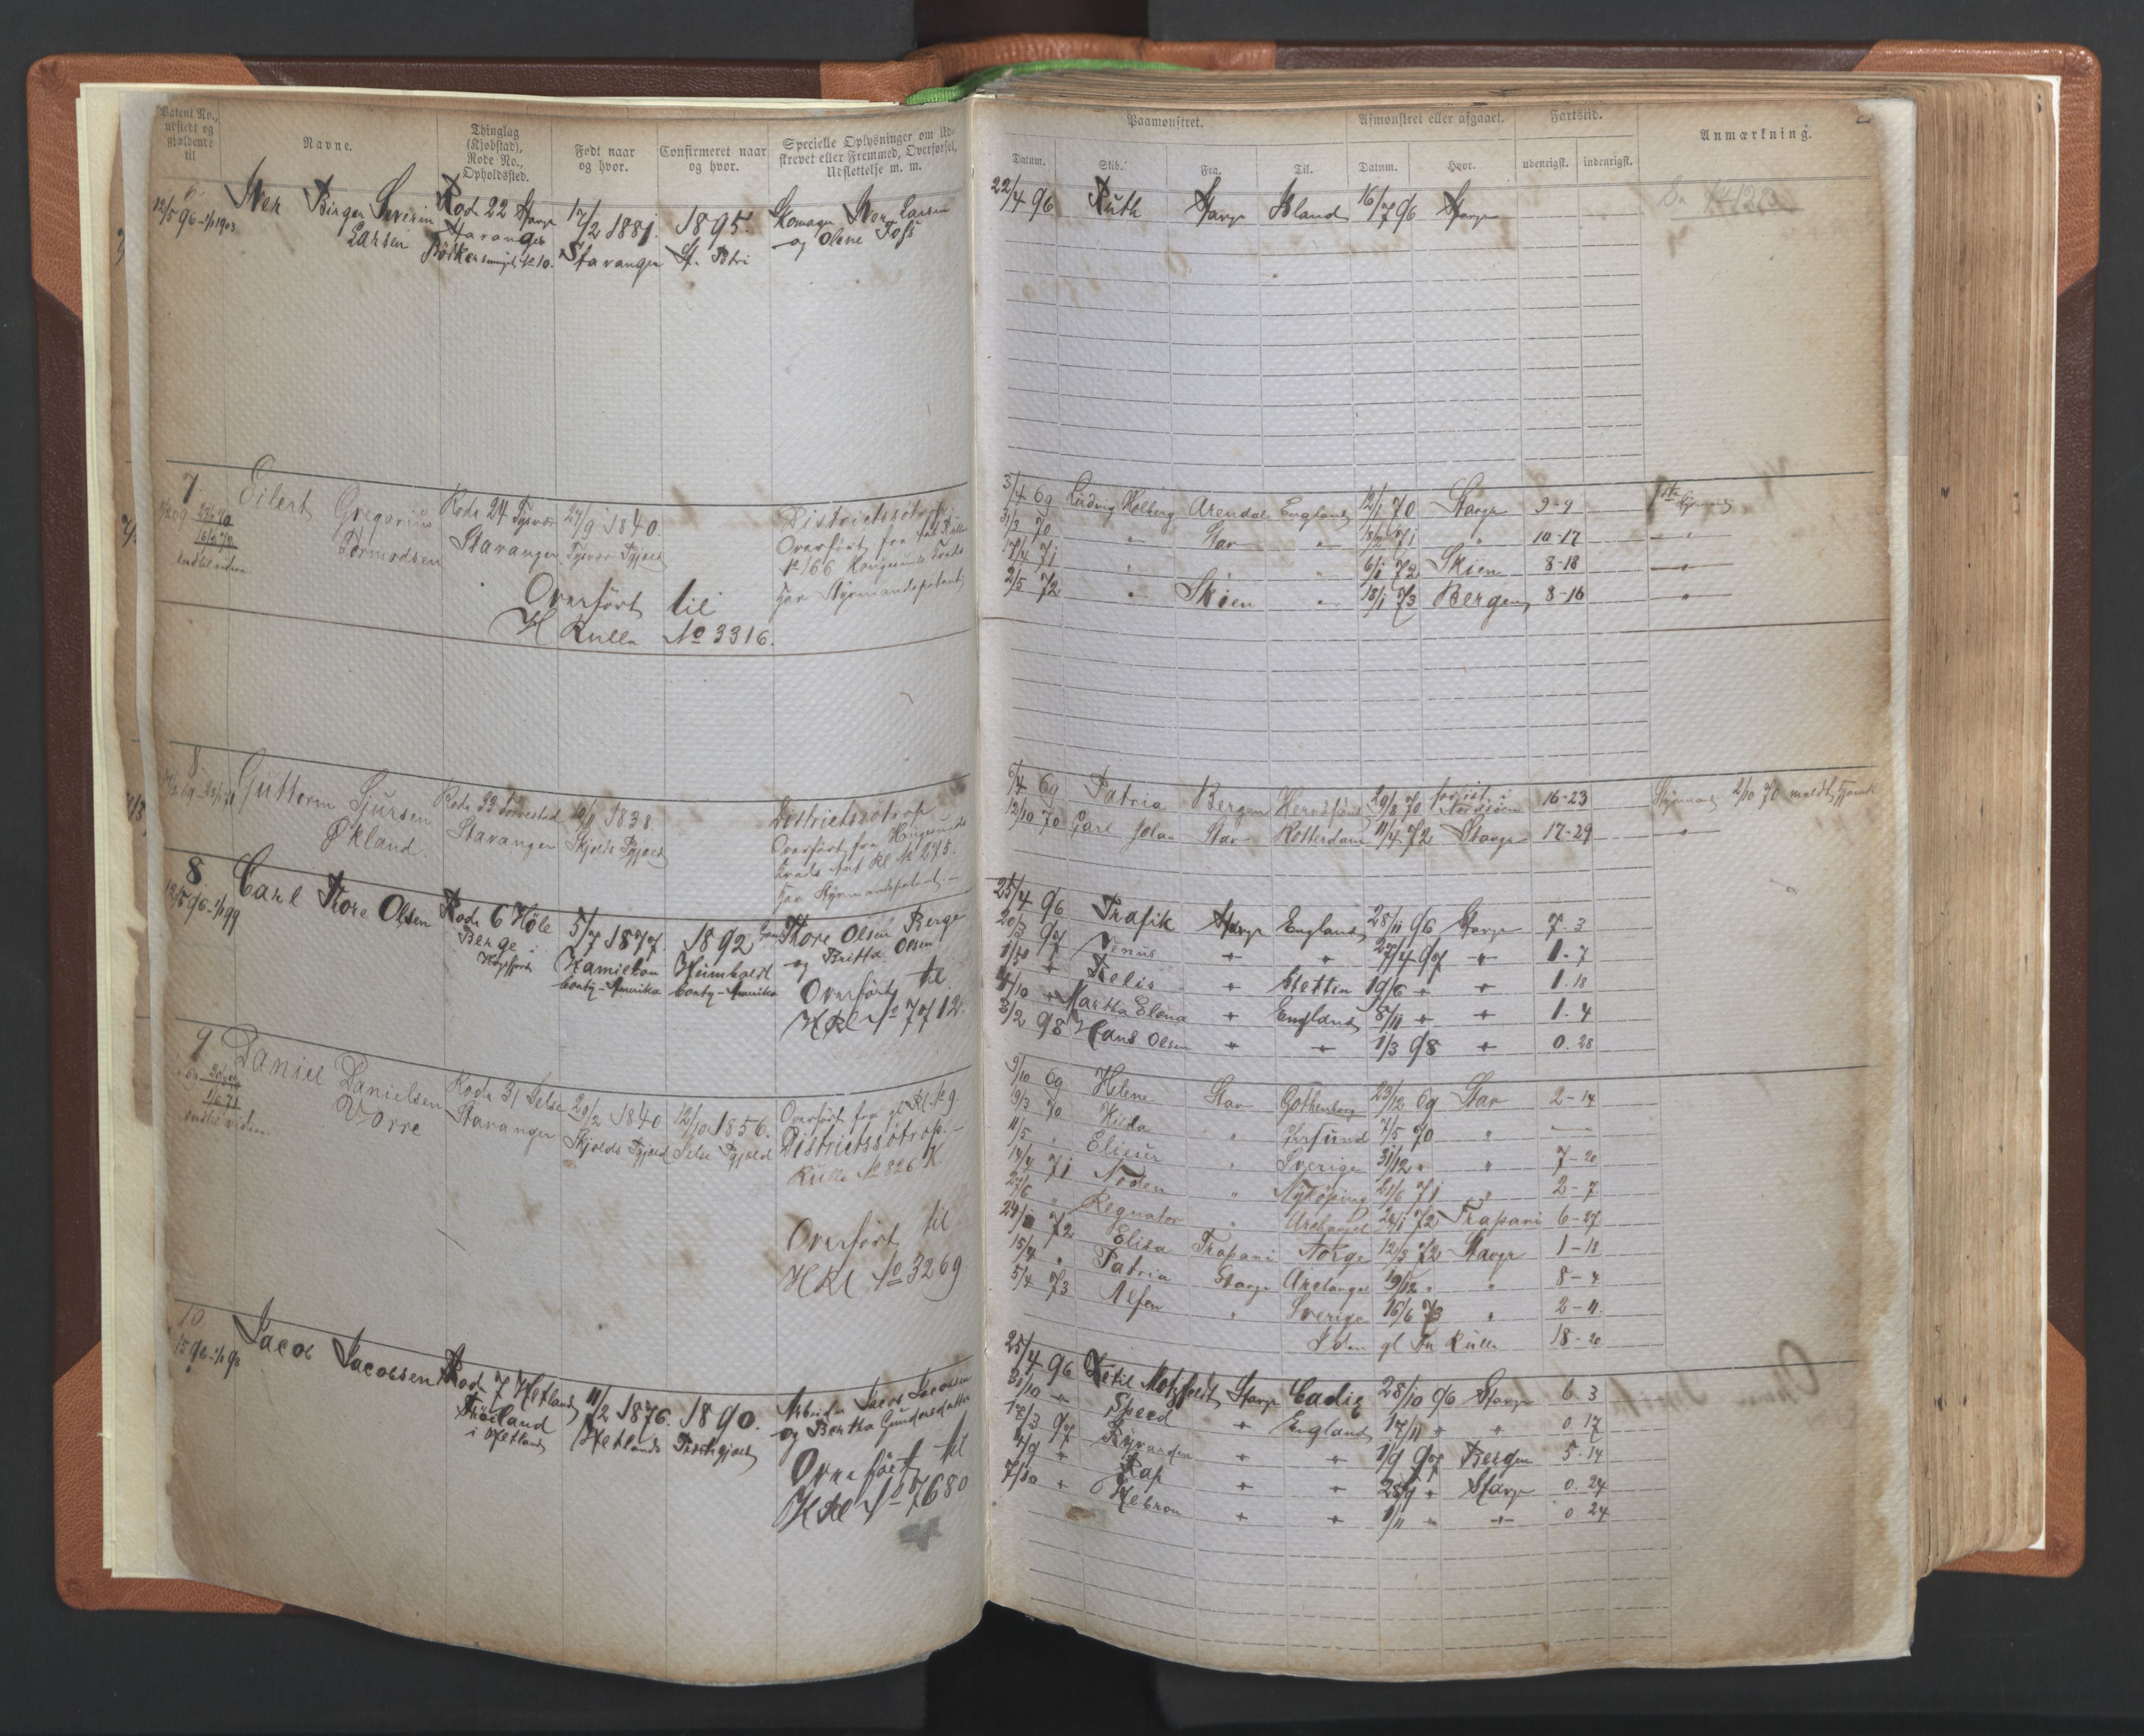 Patent No., udstedt og gjældende til
Navne.
Thinglag (Kjøbstad), Rode No., Opholdssted.
Født naar og hvor.
Confirmeret naar og hvor.
Specielle Oplysninger om Udskrevet eller Fremmed, Overførsel, Udslettelse m. m.
Paamønstret.
Afmønstret eller afgaaet.
Fartstid.
Anmærkning.
Datum. Skib. Fra. Til. Datum. Hvor. udenrigsk. indenrigsk.
6
12/5 96 - 1/1 1903
Iver Birger Severin
Larsen
Rode 22 Stavgr
Stavanger
No 10.
17/2 1881.
Stavanger
1895.
St. Petri
Skomager Iver Larsen
og Oline Tofs
22/4 96 Ruth Stavgr Island 16/7 96 Stavgr
7
indtil viden
Eilert Gregorius
Tormodsen
Rode 24 Tysvær
Stavanger
27/9 1840.
Tysvær Pgjæld
Districtssøtrop
Overført fra
No 166 Haugesunds Kreds
har Styrmandspatent
Overført til
H Rulle No 3316.
3/4 69 Ludvig Holberg Arendal England 12/1 70 Stavgr 9-9
31/3 70 " Stav " 18/2 71 " 10-17
17/4 71 " " " 6/1 72 Skien 8-18
2/5 72 " Skien " 18/1 73 Bergen 8-16
8
Guttorm Sjursen
Økland.
Rode 33
Stavanger
1838.
Skjolds Pgjæld
Districtssøtrop
Overført fra Haugesunds
Kreds No 275.
har Styrmandspatent.
69 Patria Bergen 29/8 70 16-23 Styrmand 2/10 70
12/10 70 Carl Johan Stav Rotterdam 11/4 72 Stavgr 17-29
8
12/5 96 - 1/1 99
Carl Thore Olsen
Rode 6 Høle
Berge i
5/7 1877.
Hamilton
Conty - Amerika
1892
Humboldt
Conty - Amerika
Thore Olsen Berge
og Britta Olsen
Overført til
HRl No 7712.
25/4 96 Trafik Stavgr England 28/11 96 Stavgr 7. 3
20/3 97 Venus " " 27/4 97 " 1. 7
" " Stettin 19/6 " " 1. 18
4/10 " Martha Elena " England 8/11 " " 1. 4
3/2 98 Hans Olsen " " 1/3 98 " 0. 28
9
indtil viden
Daniel Danielsen
Vorre
Rode 31 Jelse
Stavanger
29/2 1840
Skjolds Pgjæld
12/10 1856.
Jelse Pgjæld
Overført fra gl Rl. No 9
Districtssøtrop.
Rulle No 826 K
Overført til
HRl No 3269.
9/10 69 Helene Stav Gothenborg 23/12 69 Stav 2-14
9/3 70 Hilda " 7/5 70 "
11/5 " Elieser " Sverige 31/12 " " 7-20
14/4 71 Noden " Nykøping 21/6 71 " 2-7
27/6 " Regnator " Archangel 24/1 72 Trapani 6-27
72 Elisa Trapani Norge 12/3 72 Stavgr 1-18
15/4 " Patria Stavgr Archangel 19/12 " " 8-4
5/4 73 Alfen " Sverige 16/6 73 " 2-11.
gl Rulle 18-20
10
Jacob Jacobsen
Rode 7 Hetland
i Hetland
11/2 1876.
Hetlands Prestegjæld
1890.
Arbeider Jacob Jacobsen
og Bertha Gundersdatter
Overført til
HRl No 7680
25/4 96 Ketil Motzfeldt Stavgr Cadiz 28/10 96 Stavgr 6. 3
31/10 " Speed " England 17/11 " " 0. 17
18/3 97 " " 1/9 97 Bergen 5-14
4/9 " Rap " " 28/9 " Stavgr 0. 24
7/10 " Hebron " " 1/11 " " 0 24